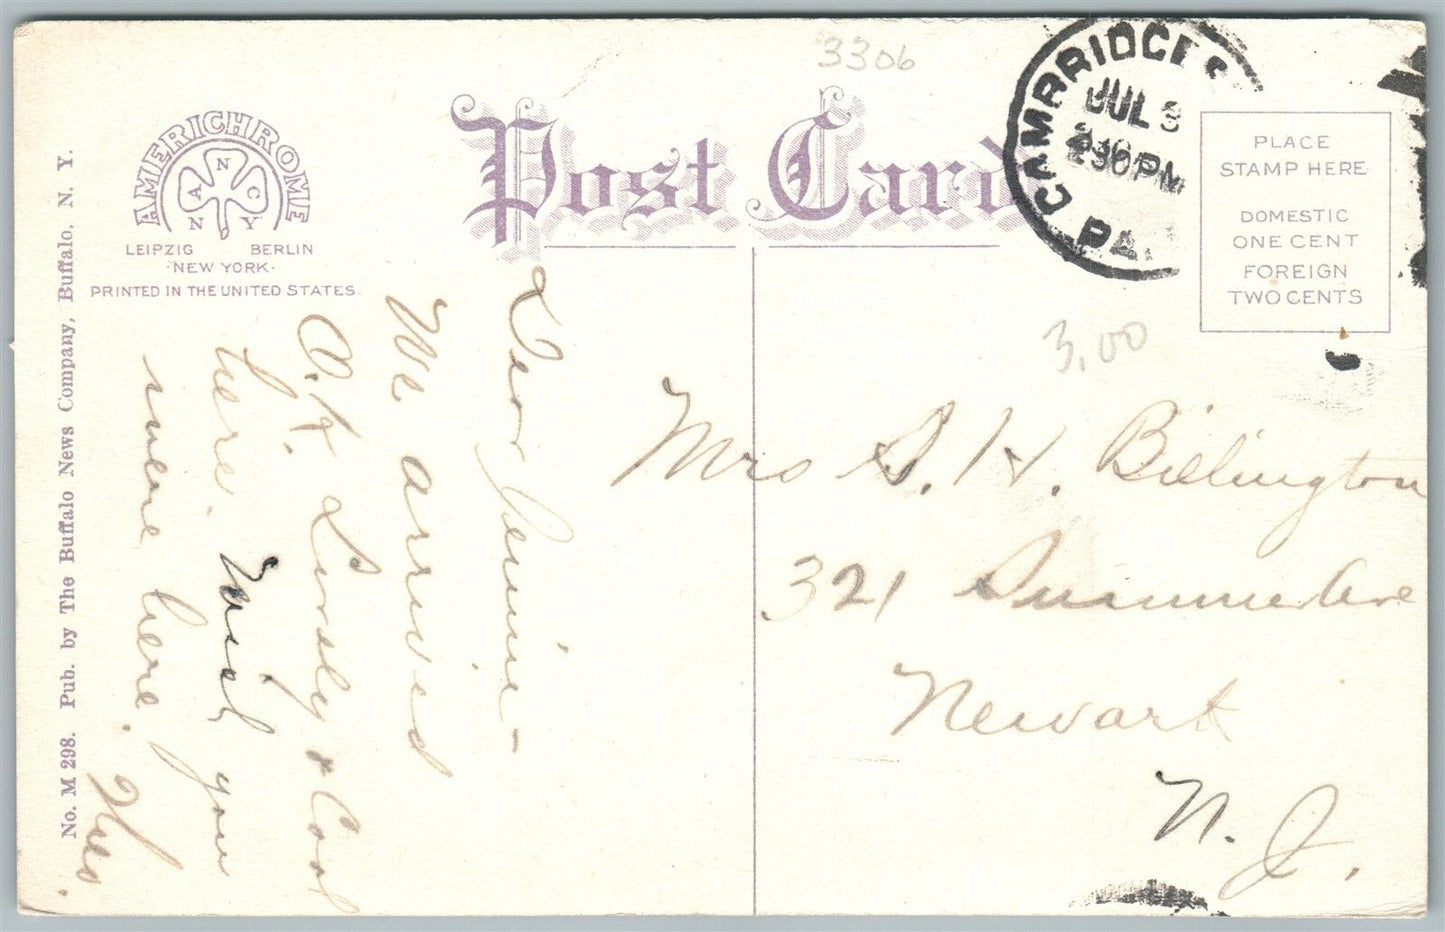 3306
Post Card
AMERICHROME
ANCNY
LEIPZIG BERLIN
·NEW YORK·
PRINTED IN THE UNITED STATES.
No. M 298. Pub. by The Buffalo News Company, Buffalo, N. Y.
CAMBRIDGE S
JUL 3
230PM
PA.
PLACE
STAMP HERE
DOMESTIC
ONE CENT
FOREIGN
TWO CENTS
3.00
Dear Jennie –
We arrived
O.K. Lovely & Cool
here. Wish you
were here.
Mrs S. H. Billington
321 Summer Ave
Newark
N. J.